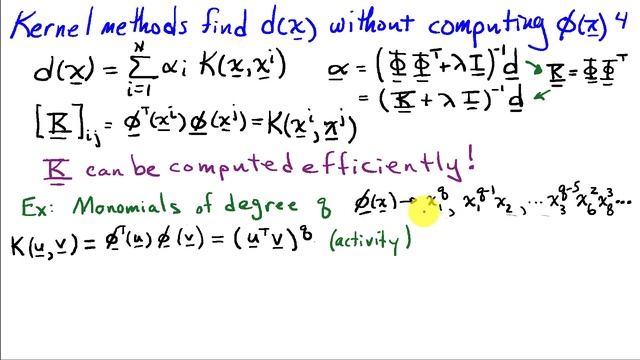 Kernel methods find d(x) without computing ϕ(x) 4
d(x) = Σ_{i=1}^{N} α_i K(x, x^i)   α = (Φ Φ^T + λ I)^{-1} d   K = Φ Φ^T
= (K + λ I)^{-1} d
[K]_{ij} = ϕ^T(x^i) ϕ(x^j) = K(x^i, x^j)
K can be computed efficiently!
Ex: Monomials of degree q   ϕ(x) → x_1^q, x_1^{q-1} x_2, ... x_3^{q-5} x_6^2 x_8^3 ...
K(u, v) = ϕ^T(u) ϕ(v) = (u^T v)^q (activity)